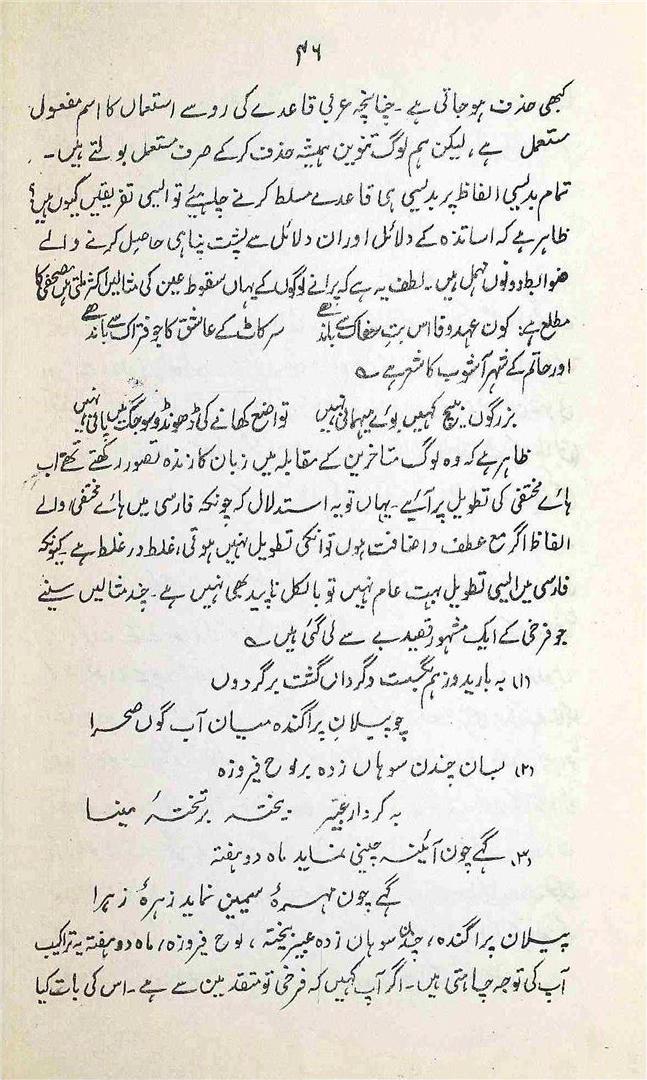 ۳۶
کبھی حذف ہو جاتی ہے۔ چنانچہ عربی قاعدے کی رو سے استعمال کا اسم مفعول
مستعمل ہے، لیکن ہم لوگ تنوین ہمیشہ حذف کر کے صرف مستعمل بولتے ہیں۔
تمام بدلیسی الفاظ پر بدلیسی ہی قاعدے مسلط کرنے چاہیئے تو ایسی تفریقیں کیوں ہیں؟
ظاہر ہے کہ اساتذہ کے دلائل اور ان دلائل سے پشت پناہی حاصل کرنے والے
ضوابط دونوں مہمل ہیں۔ لطف یہ ہے کہ پرانے لوگوں کے یہاں سقوط عین کی مثالیں اکثر ملتی ہیں مصحفی کا
مطلع ہے: کون عہد وفا اس بت سفاک سے باندھے سر کاٹ کے عاشق کا جو فتراک سے باندھے
اور حاتم کے شہر آشوب کا شعر ہے ؎
بزرگوں بیچ کہیں بوئے میہمانی نہیں تواضع کھانے کی ڈھونڈو سو جگ میں پانی نہیں
ظاہر ہے کہ وہ لوگ متاخرین کے مقابلہ میں زبان کا زندہ تصور رکھتے تھے اب
ہائے مختفی کی تطویل پر آئیے۔ یہاں تو یہ استدلال کہ چونکہ فارسی میں ہائے مختفی والے
الفاظ اگر مع عطف و اضافت ہوں تو انکی تطویل نہیں ہوتی، غلط در غلط ہے کیونکہ
فارسی میں ایسی تطویل بہت عام نہیں تو بالکل ناپید بھی نہیں ہے۔ چند مثالیں سنیے
جو فرخی کے ایک مشہور قصیدے سے لی گئی ہیں ؎
(۱) بہ بارید و زہم بگسست و گرداں گشت بر گردوں
چو پیلان پراگندہ میان آب گوں صحرا
(۲) بسان چندن سوہاں زدہ بر لوح فیروزہ
بہ کردار عبیر بیختہ بر تختۂ مینا
(۳) گہے چون آئنہ چینی نماید ماہ دو ہفتہ
گہے چون مہرۂ سیمین نماید زہرۂ زہرا
پیلان پراگندہ، چندن سوہاں زدہ عبیر بیختہ، لوح فیروزہ، ماہ دو ہفتہ یہ تراکیب
آپ کی توجہ چاہتی ہیں۔ اگر آپ کہیں کہ فرخی تو متقدمین سے ہے۔ اس کی بات کیا